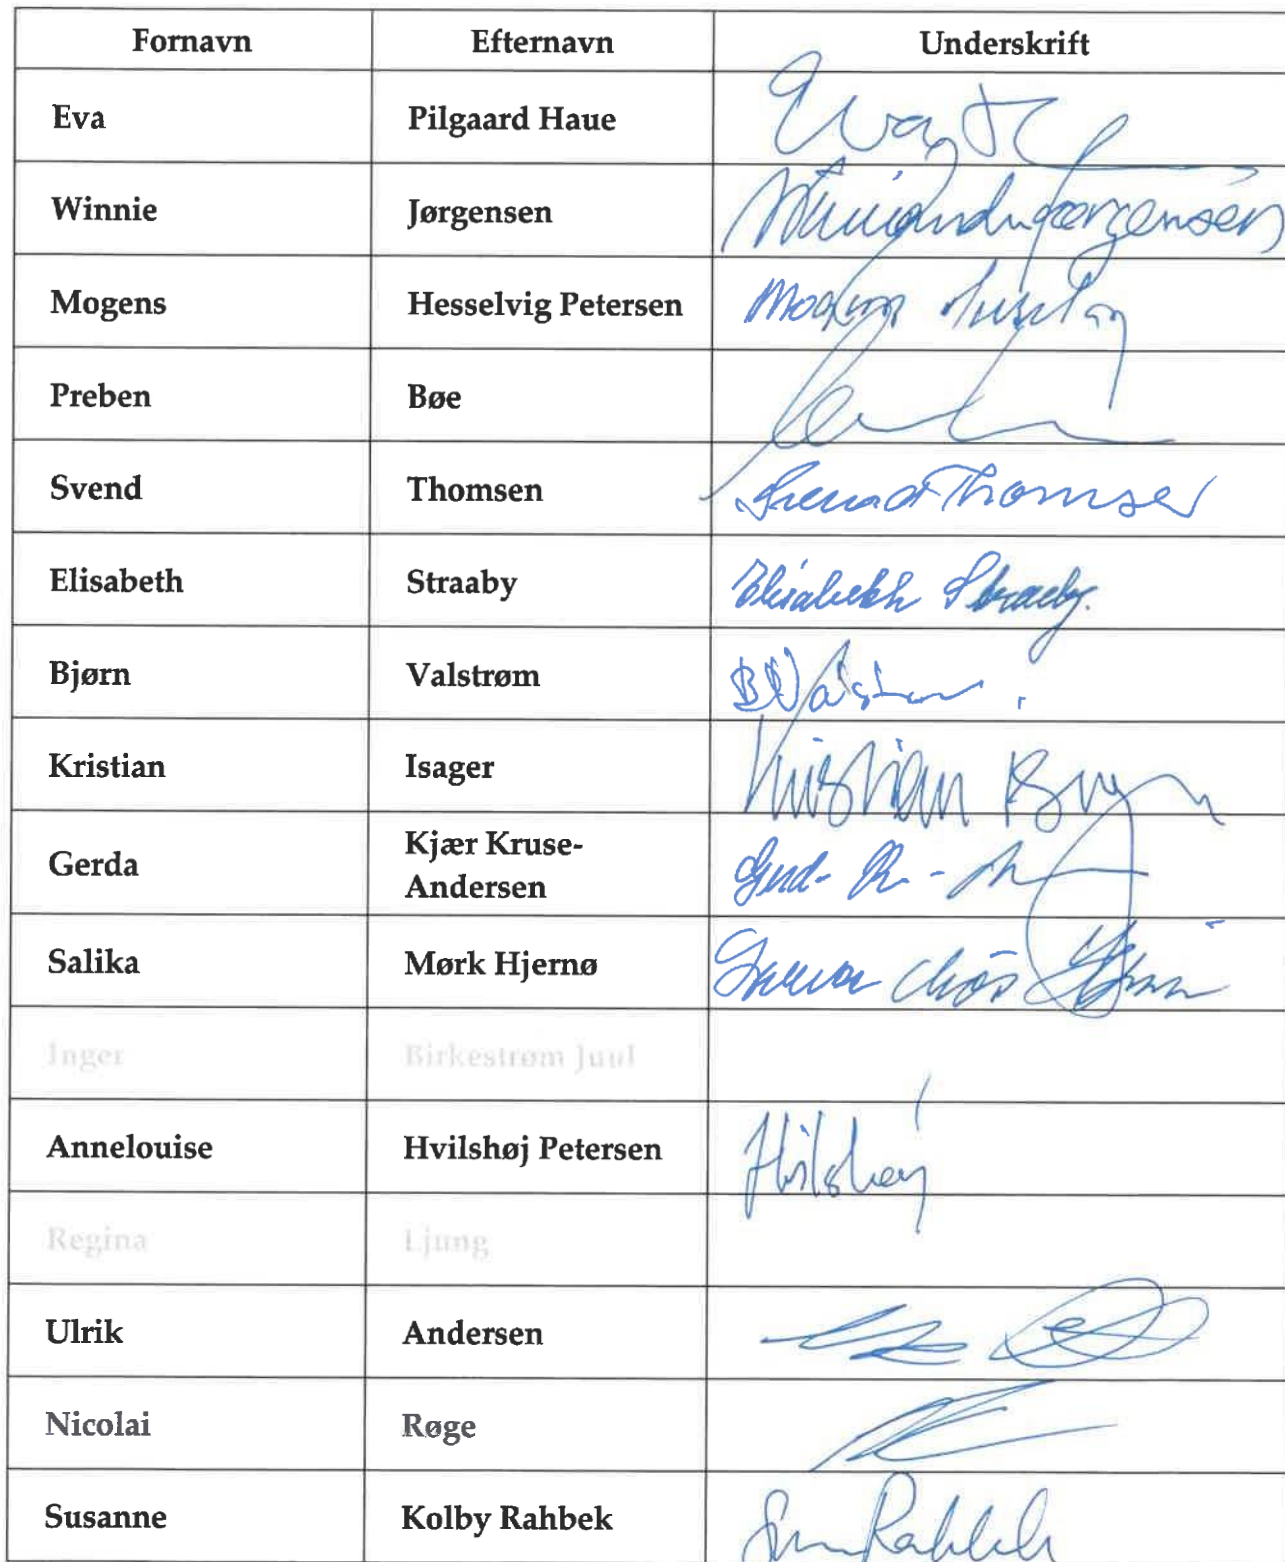 Fornavn Efternavn Underskrift
Eva Pilgaard Haue
Winnie Jørgensen
Mogens Hesselvig Petersen
Preben Bøe
Svend Thomsen Svend Thomsen
Elisabeth Straaby Elisabeth Straaby.
Bjørn Valstrøm
Kristian Isager Kristian
Gerda Kjær Kruse-
Andersen
Salika Mørk Hjernø
Inger Birkestrøm Juul
Annelouise Hvilshøj Petersen Hvilshøj
Regina Ljung
Ulrik Andersen
Nicolai Røge
Susanne Kolby Rahbek Rahbek